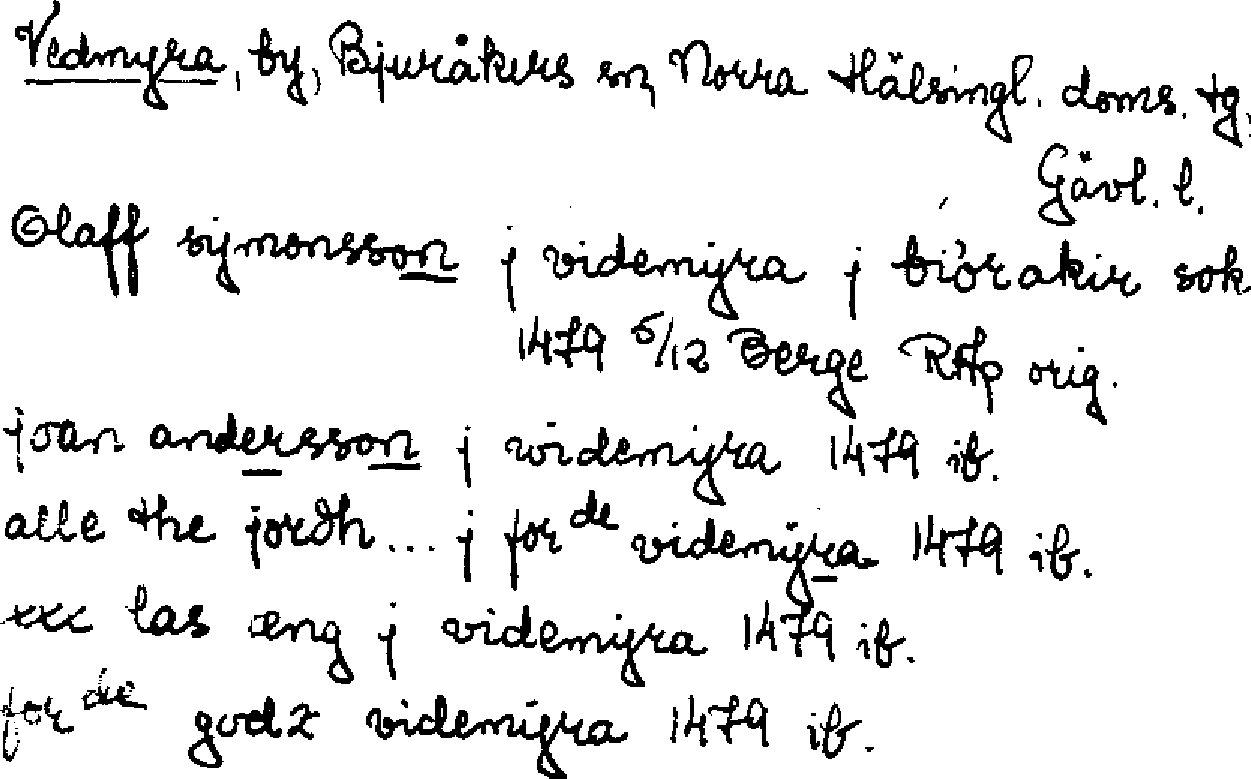 Vedmyra, by, Bjuråkers sn, Norra Hälsingl. doms. tg,
Gävl. l.
Olaff symonsson j videmyra j biörakir sok
1479 5/12 Berge RAp orig.
joan andersson j widemyra 1479 ib.
alle the jordh... j for de videmyra 1479 ib.
xxx las æng j videmyra 1479 ib.
for de godz videmyra 1479 ib.